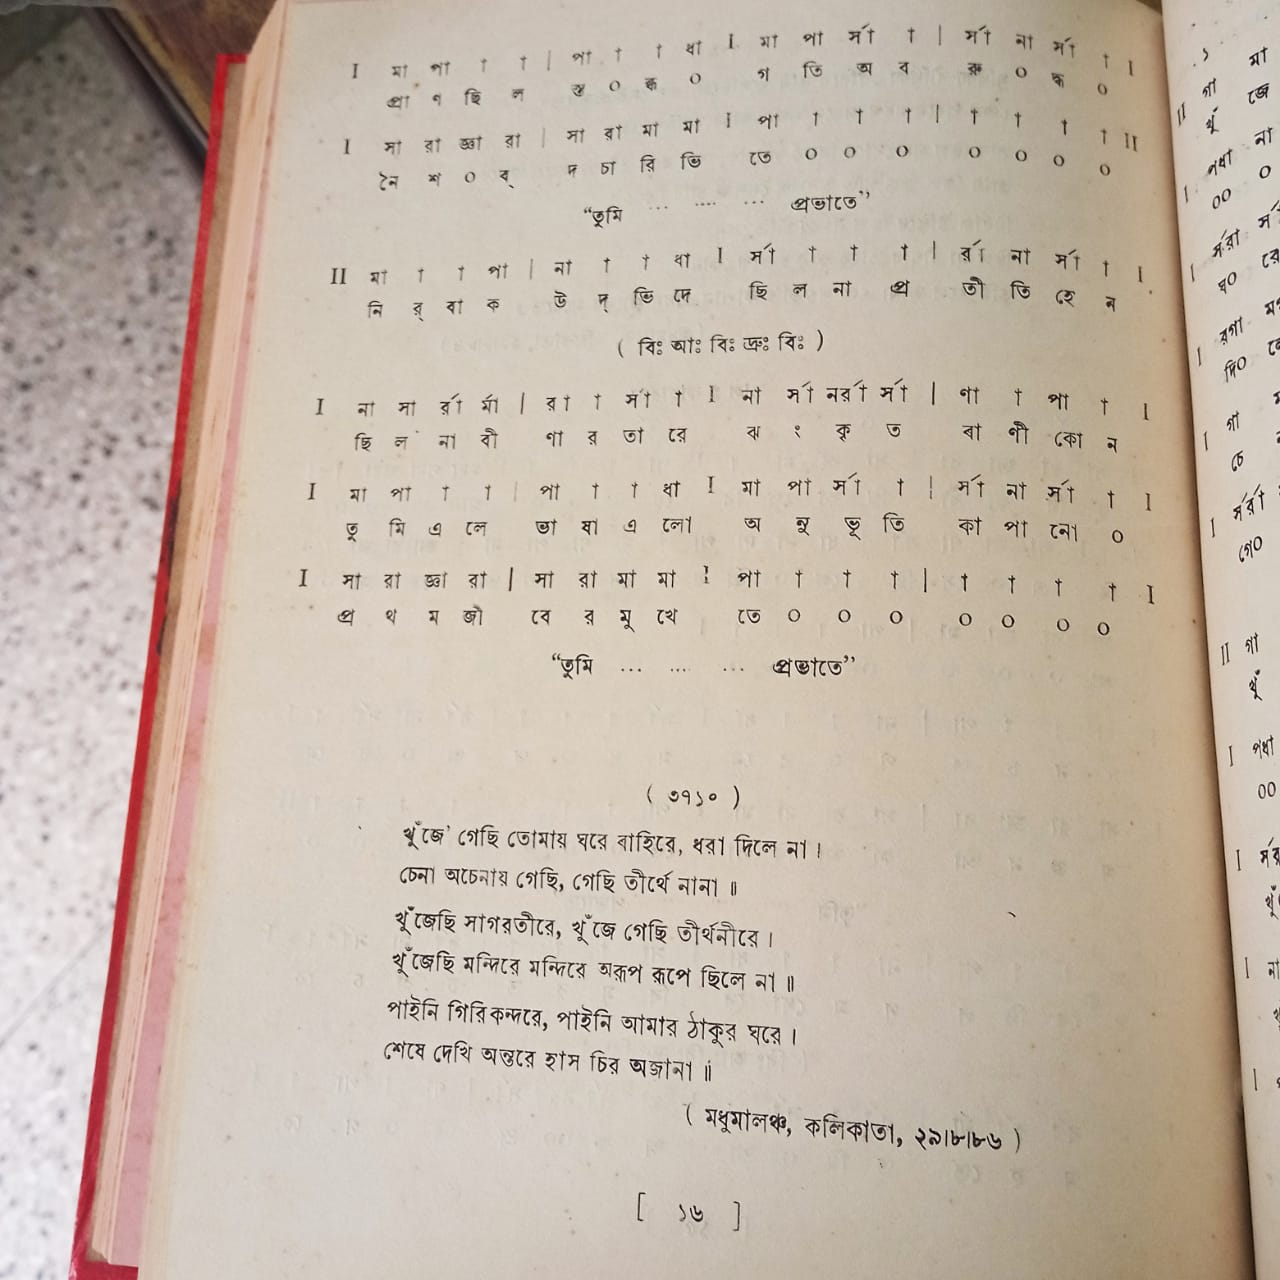 I মা পা া া | পা া া ধা I মা পা র্সা া | র্সা না র্সা া I
প্রা ণ ছি ল স্তু ০ ব্ধ ০ গ তি অ ব রু ০ দ্ধ ০
I সা রা জ্ঞা রা | সা রা মা মা I পা া া া | া া া া II
নৈ শ ০ ব্ দ চা রি ভি তে ০ ০ ০ ০ ০ ০ ০
“তুমি ... .... ... প্রভাতে”
II মা া া পা | না া া ধা I র্সা া া া | র্রা না র্সা া I
নি র্ বা ক উ দ্ ভি দে ছি ল না প্র তী তি হে ন
( বিঃ আঃ বিঃ দ্রুঃ বিঃ )
I না সা র্রা র্মা | রা া র্সা া I না র্সা নর্রা র্সা | ণা া পা া I
ছি ল না বী ণা র তা রে ঝ ং কৃ ত বা ণী কো ন
I মা পা া া | পা া া ধা I মা পা র্সা া | র্সা না র্সা া I
তু মি এ লে ভা ষা এ লো অ নু ভূ তি কা পা নো ০
I সা রা জ্ঞা রা | সা রা মা মা I পা া া া | া া া া I
প্র থ ম জী বে র মু খে তে ০ ০ ০ ০ ০ ০ ০
“তুমি ... .... ... প্রভাতে”
( ৩৭১০ )
খুঁজে' গেছি তোমায় ঘরে বাহিরে, ধরা দিলে না।
চেনা অচেনায় গেছি, গেছি তীর্থে নানা॥
খুঁজেছি সাগরতীরে, খুঁজে গেছি তীর্থনীরে।
খুঁজেছি মন্দিরে মন্দিরে অরূপ রূপে ছিলে না॥
পাইনি গিরিকন্দরে, পাইনি আমার ঠাকুর ঘরে।
শেষে দেখি অন্তরে হাস চির অজানা॥
( মধুমালঞ্চ, কলিকাতা, ২৯।৮।৮৬ )
[ ১৬ ]